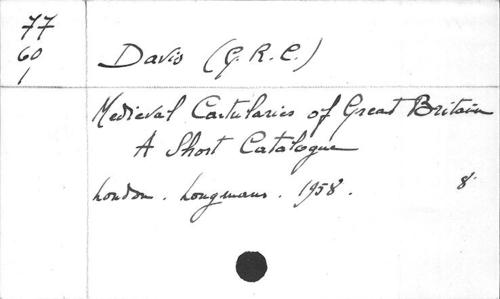 77
60
1
Davis (G. R. C.)
Medieval Cartularies of Great Britain
A Short Catalogue
London. Longmans. 1958. 8°